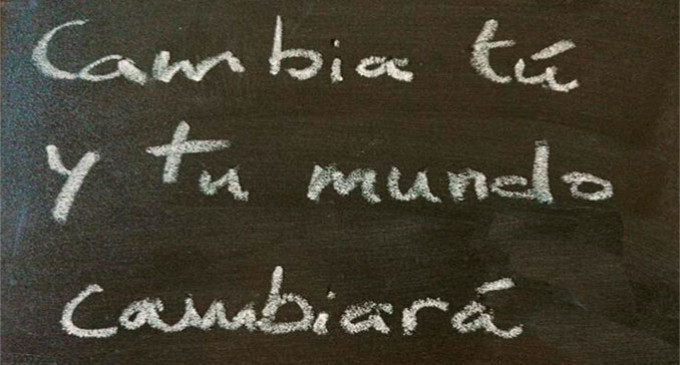 Cambia tú
y tu mundo
cambiará